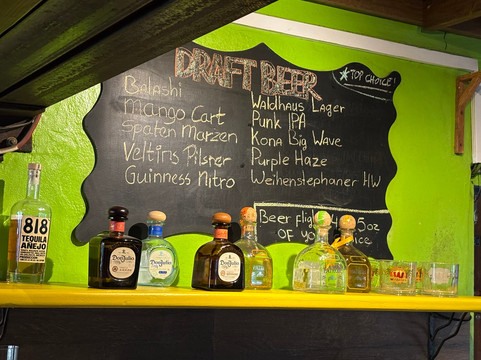 DRAFT BEER
TOP CHOICE!
Balashi
Mango Cart
Spaten Marzen
Veltins Pilsner
Guinness Nitro
Waldhaus Lager
Punk IPA
Kona Big Wave
Purple Haze
Weihenstephaner HW
Beer 5oz
OF
818
TEQUILA
AÑEJO
Don Julio
Don Julio
Don Julio